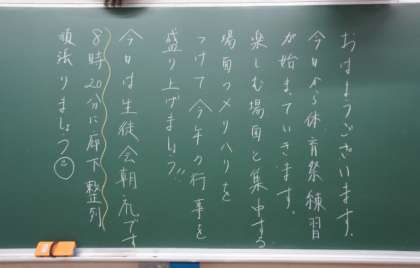 おはようございます。
今日から体育祭練習
が始まっていきます。
楽しむ場面と集中する
場面のメリハリを
つけて今年の行事を
盛り上げましょう!!
今日は生徒会朝礼です
8時20分に廊下整列
頑張りましょう